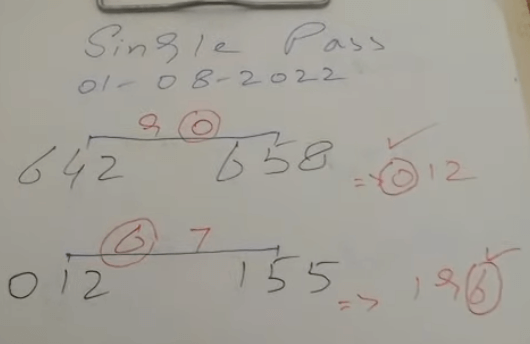 Single Pass
01-08-2022
9 0
642 658 => 012
6 7
012 155 => 196